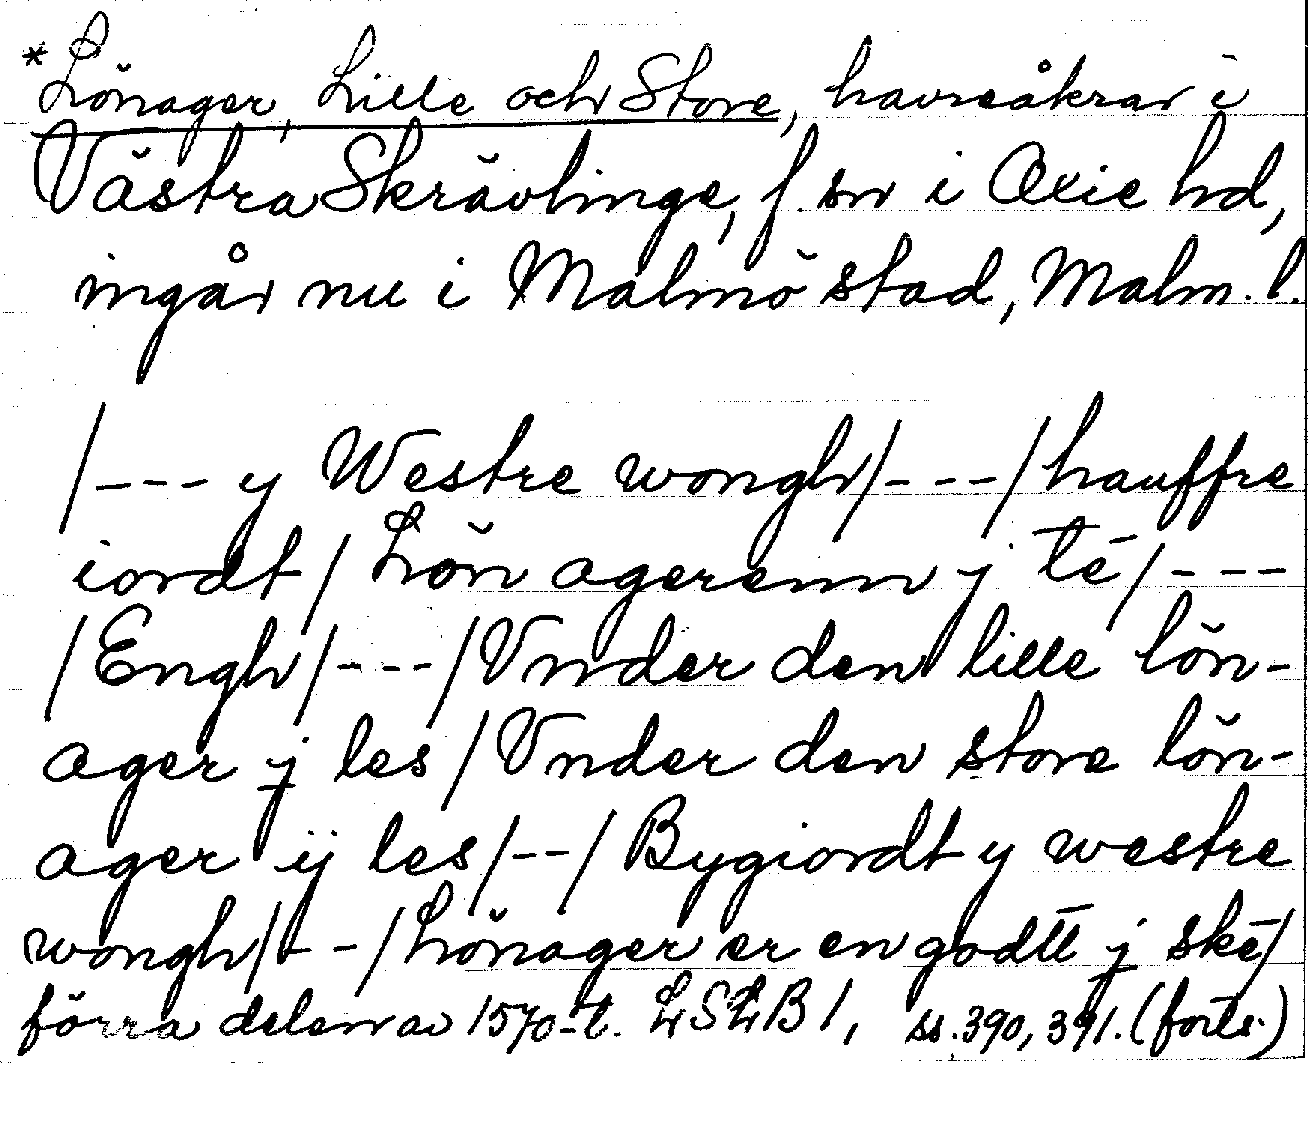 *Lönager, Lille och Store, havreåkrar i
Västra Skrävlinge, f. sn i Oxie hd,
ingår nu i Malmö stad, Malm. l.
/--- y Westre wongh/---/hauffre
iordt/Lön agerenn j tē/---
/Engh/---/Vnder den lille lön-
ager j les/Vnder den store lön-
ager ij les/--/Bygiordt y westre
wongh/--/Lönager er en godtt j skē/
förra delen av 1570-t. LSLB 1, ss. 390, 391. (forts.)